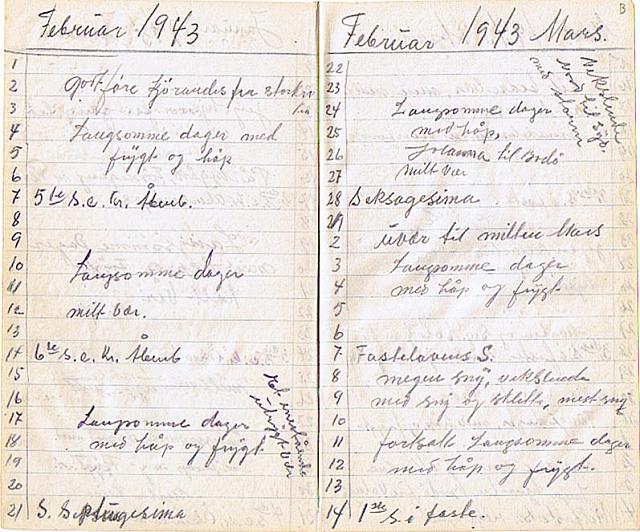 Februar 1943
1
2 Godt føre kjørandes fra
3
4 Langsomme dager med
5 frygt og håp
6
7 5te S. e. Kr. Åbenb.
8
9
10 Langsomme dager
11
12 milt vær.
13
14 6te S. e. Kr. Åbenb
15
16
17 Langsomme dager
18 med håp og frygt.
19
20
21 S. Septuagesima
vær
B
Februar 1943 Mars.
22
23
24 Langsomme dager
25 med håp,
26 Johanna til Bodø
27 milt vær
28 Seksagesima
1
2 uvær til midten Mars
3 Langsomme dager
4 med håp og frygt
5
6
7 Fastelavens S.
8 megen snø, vekslende
9 med snø og slette, mest snø
10
11 fortsatt Langsomme dager
12 med håp og frygt.
13
14 1ste S. i faste.
Vekslende
nord til syd.
med storm